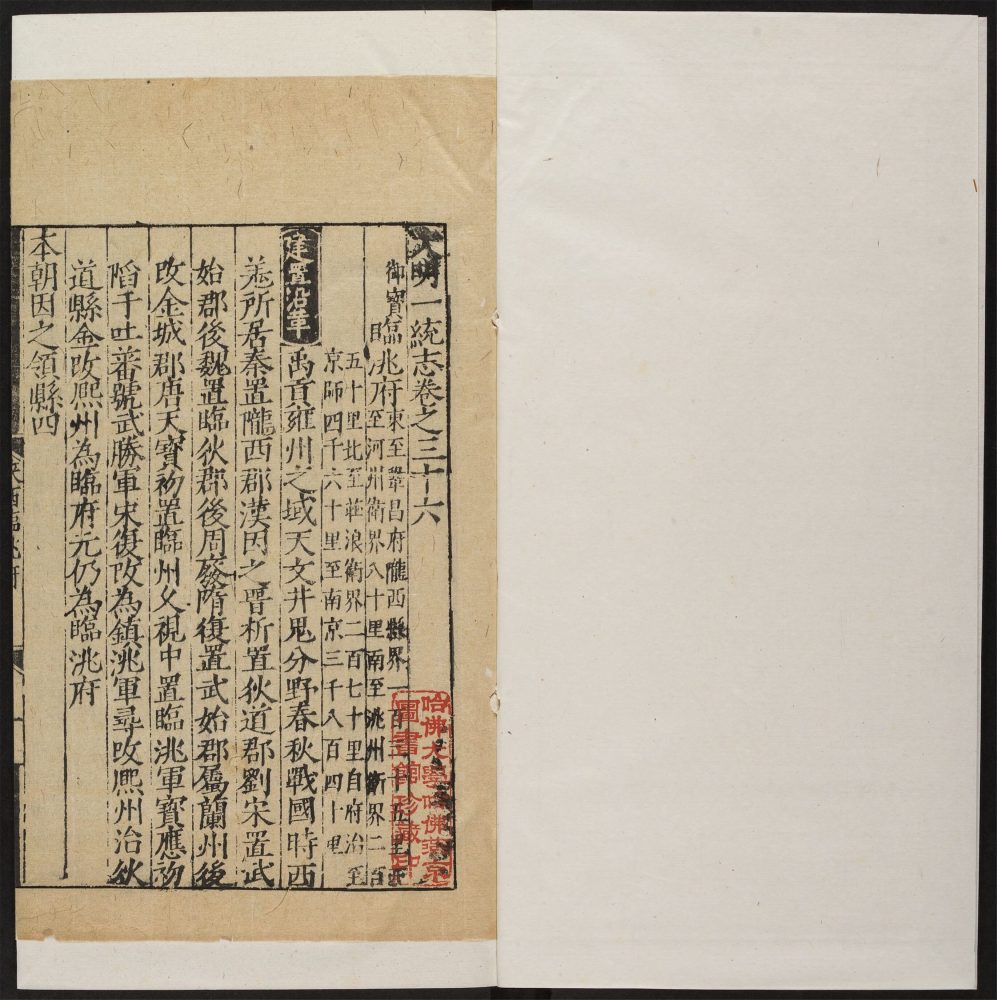 大明一統志卷之三十六
御寶臨洮府東至鞏昌府隴西縣界一百三十五里西
至河州衛界八十里南至洮州衛界二百
五十里北至莊浪衛界二百七十里自府治至
京師四千六十里至南京三千八百四十里
建置沿革 禹貢雍州之域天文井鬼分野春秋戰國時西
羌所居秦置隴西郡漢因之晉析置狄道郡劉宋置武
始郡後魏置臨狄郡後周廢隋復置武始郡屬蘭州後
改金城郡唐天寶初置臨州父視中置臨洮軍寶應初
陷于吐蕃號武勝軍宋復改為鎮洮軍尋改熙州治狄
道縣金改熙州為臨府元仍為臨洮府
本朝因之領縣四
哈佛大學哈佛燕京
圖書館珍藏印